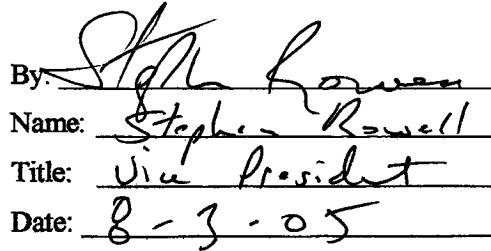 By: Stephen Rowell
Name: Stephen Rowell
Title: Vice President
Date: 8-3-05